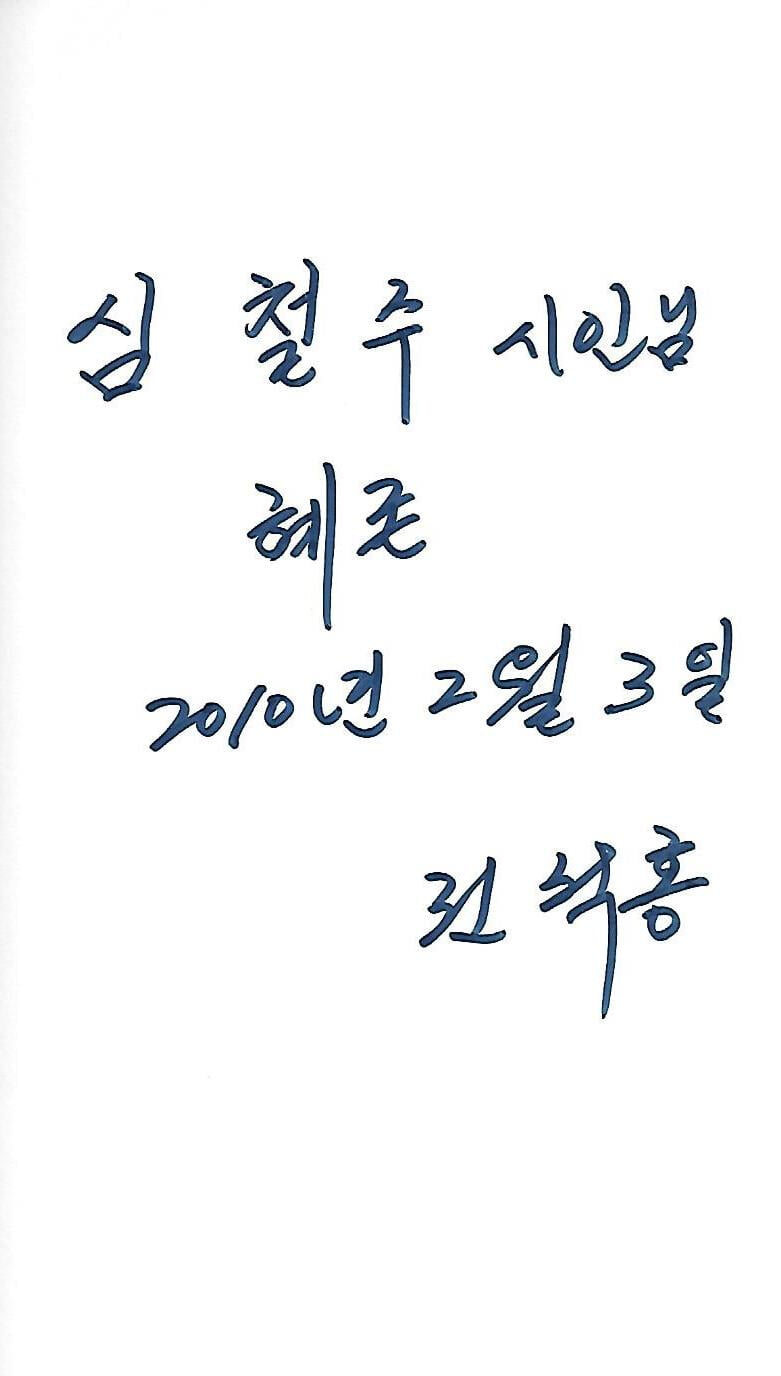 심 철 수 시인님
혜존
2010년 2월 3일
전석홍